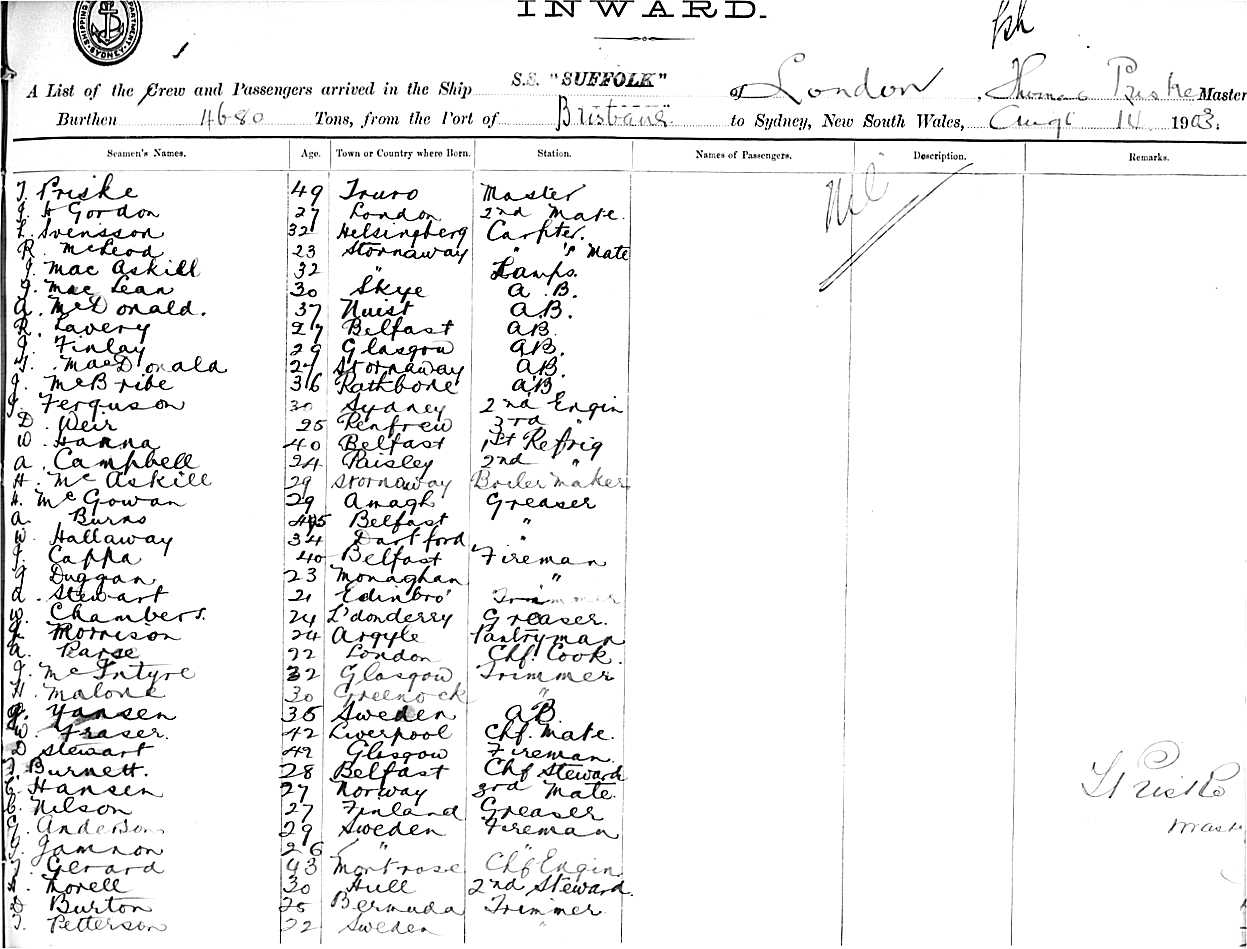 INWARD.
SHIPPING DEPARTMENT SYDNEY
A List of the Crew and Passengers arrived in the Ship S.S. "SUFFOLK" of London, Thomas Priske Master
Burthen 4680 Tons, from the Port of Brisbane to Sydney, New South Wales, Augt 14 1903.
Seamen's Names. Age. Town or Country where Born. Station. Names of Passengers. Description. Remarks.
Nil
T. Priske 49 Truro Master
J. H Gordon 27 London 2nd Mate.
L. Svensson 32 Helsingberg Carpter.
R. McLeod 23 Stornaway " 's Mate
J. Mac Askill 32 " Lamps.
J. Mac Lean 30 Skye A.B.
A. McDonald. 37 Nuist A.B.
R. Lavery 27 Belfast AB.
J. Finlay 29 Glasgow AB.
T. MacDonald 24 Stornaway AB.
J. McBribe 36 Rathbone AB
J. Ferguson 30 Sydney 2nd Engin
D. Weir 25 Renfrew 3rd "
W. Hanna 40 Belfast 1st Refrig
A. Campbell 24 Paisley 2nd "
H. Mc Askill 29 Stornaway Boiler maker
H. McGowan 29 Amagh Greaser
A. Burns 45 Belfast "
W. Hallaway 34 Dartford "
J. Cappa 40 Belfast Fireman
J. Duggan 23 Monaghan "
A. Stewart 21 Edinbro' Trimmer
W. Chambers. 24 L'donderry Greaser.
J. Morrison 24 Argyle Pantryman
A. Parse 22 London Chf. Cook.
J. McIntyre 32 Glasgow Trimmer
H. Malone 30 Greenock "
Yansen 35 Sweden AB
W. Fraser. 42 Liverpool Chf. Mate.
D Stewart 42 Glasgow Fireman.
Burnett. 28 Belfast Chf Steward
Hansen 27 Norway 3rd Mate.
C. Nilson 27 Finland Greaser
G. Anderson 29 Sweden Fireman
Jamnon 26 " "
T. Gerard 43 Montrose Chf Engin
Thorell 30 Hull 2nd Steward.
D Burton 25 Bermuda Trimmer
T. Petterson 22 Sweden "
T Priske
Mast